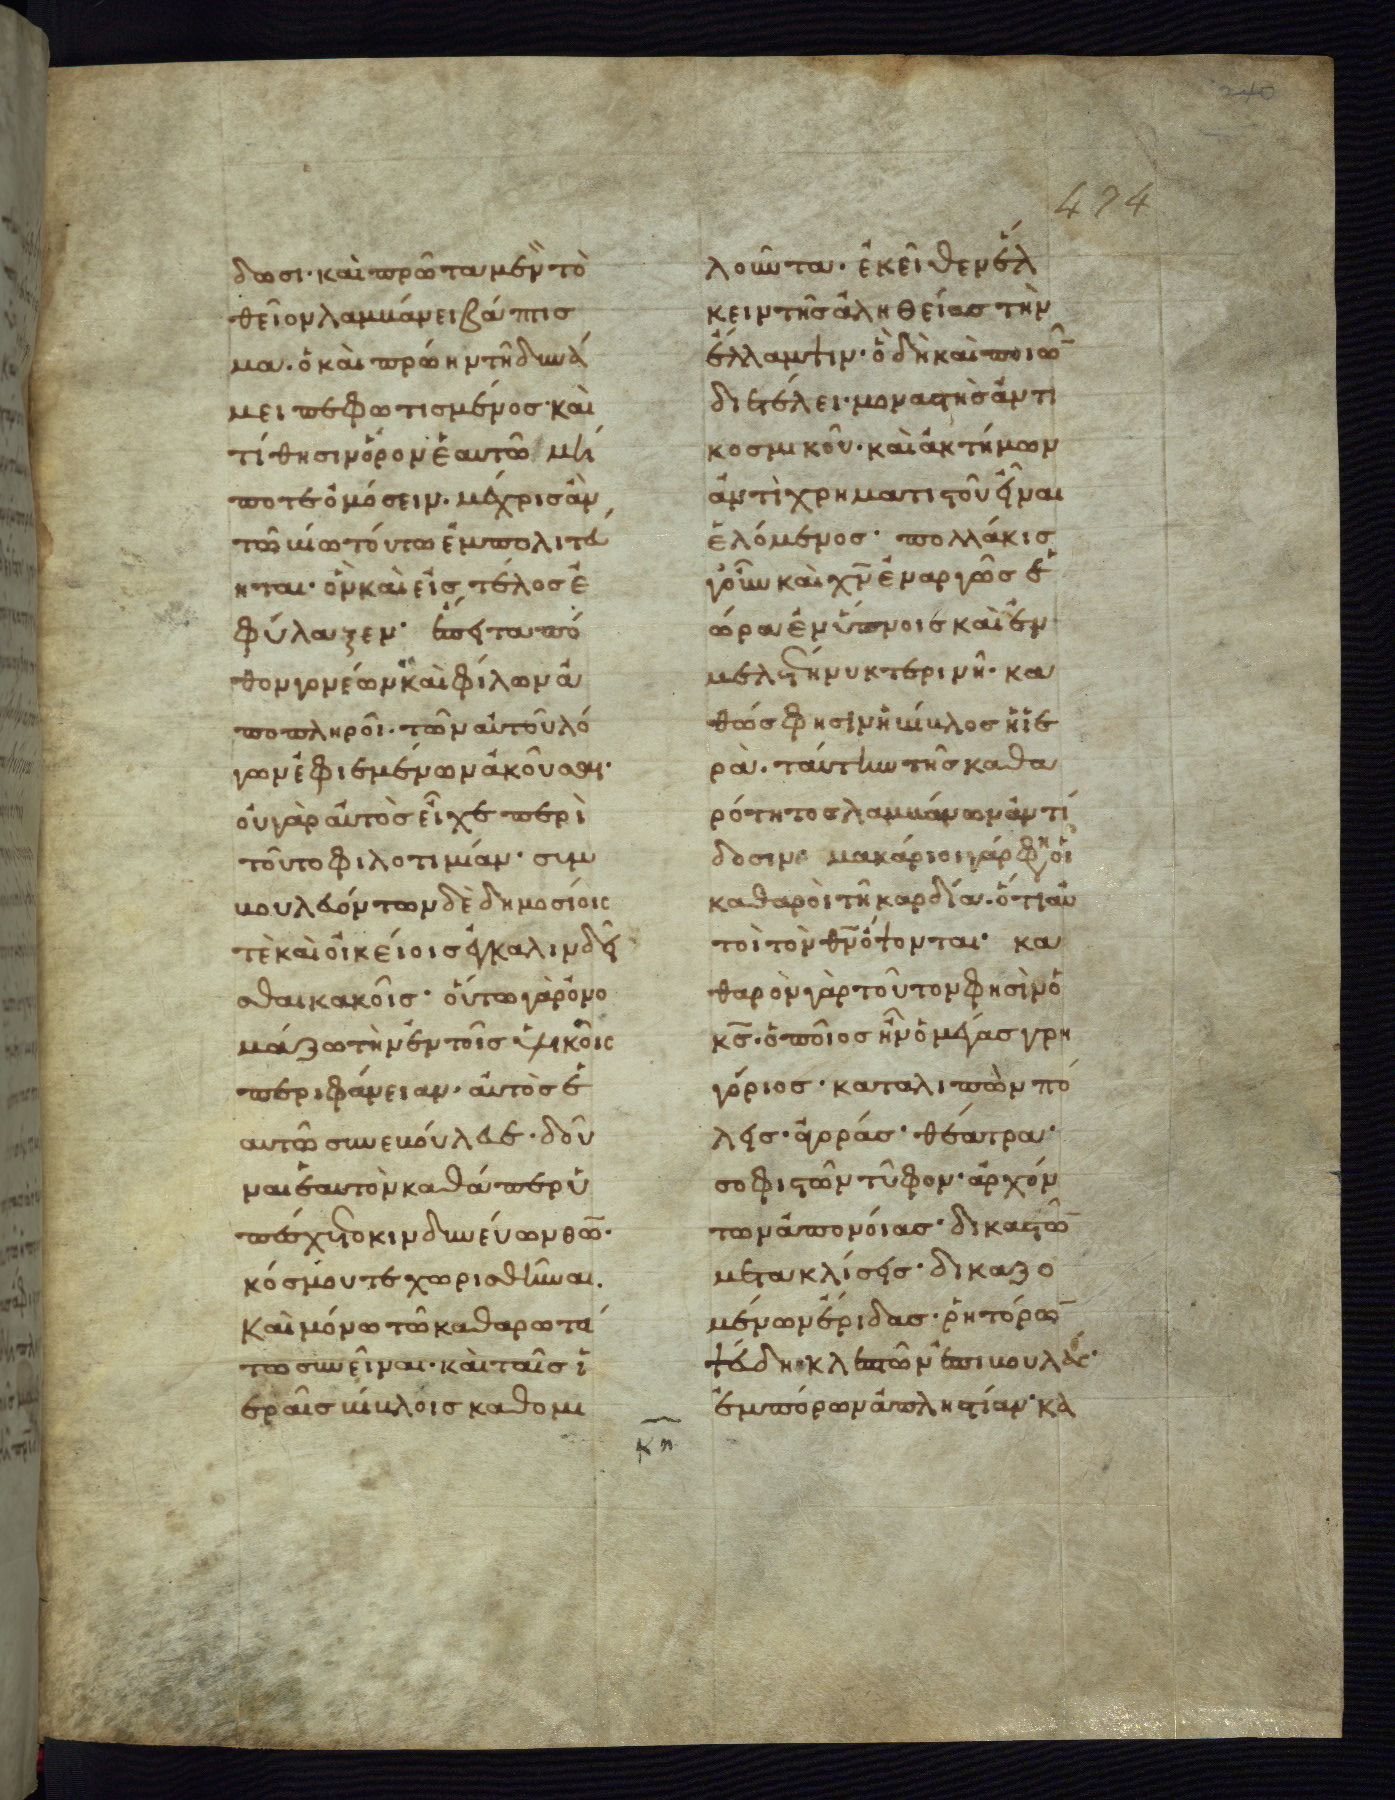 240
474
δωσι· καὶ πρῶτα μὲν τὸ
θεῖον λαμβάνει βάπτισ
μα. ὁ καὶ πρώην τῆ δυνά
μει πεφωτισμένος· καὶ
τίθησιν ὅρον ἑαυτῶ μή
ποτε ὀμόσειν. μέχρις ἂν
τῶ βίω τούτω ἐμπολιτεύ
ηται· ὃν καὶ εἰς τέλος ἐ
φύλαξεν· ἔπειτα πό
θον γονέων καὶ φίλων ἀ
ποπληροῖ· τῶν αὐτοῦ λό
γων ἐφιεμένων ἀκοῦσαι·
οὐ γὰρ αὐτὸς εἶχε περὶ
τοῦτο φιλοτιμίαν· συμ
βουλεύόντων δὲ δημοσίοις
τὲ καὶ οἰκείοις ἐγκαλινδεῖ
σθαι κακοῖς· οὕτω γὰρ ὀνο
μάζω τὴν ἐν τοῖς ὑλικοῖς
περιφάνειαν· αὐτὸς ἑ
αυτῶ συνεβούλευε· δοῦ
ναι ἑαυτὸν καθάπερ ὑ
πέσχετο κινδυνεύων θῶ̅·
κόσμου τε χωρισθῆναι.
Καὶ μόνω τῶ καθαρωτά
τω συνεῖναι· καὶ ταῖς ἱ
εραῖς βίβλοις καθομι
λοῦντα· ἐκεῖθεν ἕλ
κειν τῆς ἀληθείας τὴν
ἔλλαμψιν· ὃ δὴ καὶ ποιῶ̅
διετέλει· μοναστὴς ἀντι
κοσμικοῦ· καὶ ἀκτήμων
ἀντὶ χρηματιστοῦ εἶναι
ἑλόμενος· πολλάκις
γοῦν καὶ χν̅ ἐναργῶς ἑ
ώρα ἐν ὕπνοις καὶ ἐν
μελέτη νυκτερινῆ· κα
θώς φησὶν ἡ βίβλος ἡ ἱε
ρὰ. ταύτην τῆς καθα
ρότητος λαμβάνων ἀντί
δοσιν· μακάριοι γάρ φη οἱ
καθαροὶ τῆ καρδία· ὅτι αὐ
τοὶ τὸν θν̅ ὄψονται· κα
θαρὸν γὰρ τοῦτον φησὶν ὁ
κς̅· ὁποῖος ἦν ὁ μέγας γρη
γόριος· καταλιπὼν πό
λεις· ἀγορὰς· θέατρα·
σοφιστῶν τῦφον· ἀρχόν
των ἀπονοίας· δικαστῶ̅
μετακλίσεις· δικαζο
μένων ἔριδας· ῥητόρω̅
ψεύδη· κλεπτῶν ἐπιβουλάς·
ἐμπόρων ἀπληστίαν· κα
κη̅